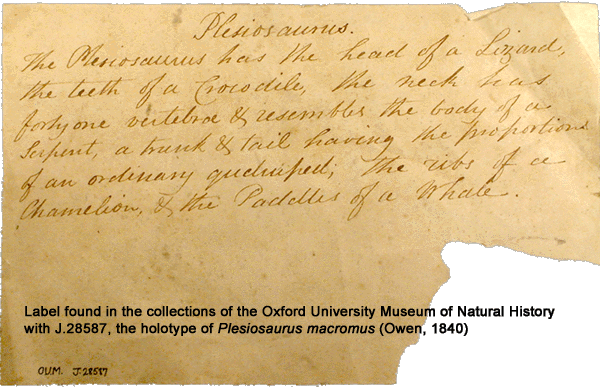 Plesiosaurus.
The Plesiosaurus has the head of a Lizard,
the teeth of a Crocodile, the neck has
forty one vertebræ & resembles the body of a
Serpent, a trunk & tail having the proportions
of an ordinary qudruped; the ribs of a
Chamelion, & the Paddles of a Whale.
Label found in the collections of the Oxford University Museum of Natural History
with J.28587, the holotype of Plesiosaurus macromus (Owen, 1840)
OUM. J.28587